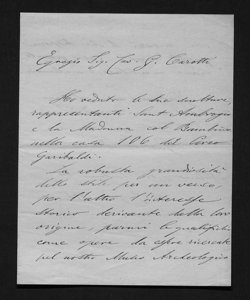 Egregio Sig. Cav. G. Carotti
Ho veduto le due sculture,
rappresentanti Sant'Ambrogio
e la Madonna col Bambino
nella casa 106 del Corso
Garibaldi.
La robusta grandiosità
dello stile per un verso,
per l'altro l'interesse
storico derivante dalla loro
origine, parmi le qualifichi
come opere da essere ricercate
pel nostro Museo Archeologico